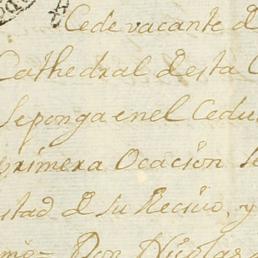 Cede vacante d
Cathedral desta C
Seponga enel Cedu
primera Ocación se
stad de su Recivo, y
mo Don Nicolas